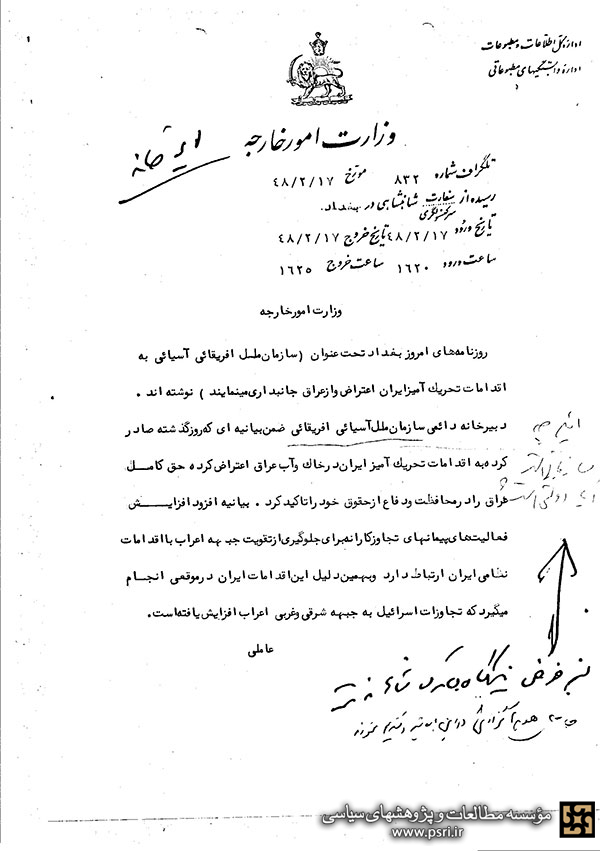 اداره کل اطلاعات و مطبوعات
اداره وابستگیهای مطبوعاتی
وزارت امورخارجه
تلگراف شماره ۸۳۲ مورخ ۴۸/۲/۱۷
رسیده از سفارت شاهنشاهی در بغداد.
سرکنسولگری
تاریخ ورود ۴۸/۲/۱۷ تاریخ خروج ۴۸/۲/۱۷
ساعت ورود ۱۶۲۰ ساعت خروج ۱۶۲۵
وزارت امورخارجه
روزنامه‌های امروز بغداد تحت عنوان (سازمان ملل افریقائی آسیائی به
اقدامات تحریک آمیز ایران اعتراض و از عراق جانبداری مینمایند) نوشته اند.
دبیرخانه دائمی سازمان ملل آسیائی افریقائی ضمن بیانیه ای که روز گذشته صادر
کرده به اقدامات تحریک آمیز ایران در خاک و آب عراق اعتراض کرده حق کامل
عراق را در محافظت و دفاع از حقوق خود را تاکید کرد. بیانیه افزود افزایش
فعالیت‌های پیمانهای تجاوزکارانه برای جلوگیری از تقویت جبهه اعراب با اقدامات
نظامی ایران ارتباط دارد و بهمین دلیل این اقدامات ایران در موقعی انجام
میگیرد که تجاوزات اسرائیل به جبهه شرقی و غربی اعراب افزایش یافته است.
عاملی
این چه
سازمانی است
مؤسسه مطالعات و پژوهشهای سیاسی
www.psri.ir